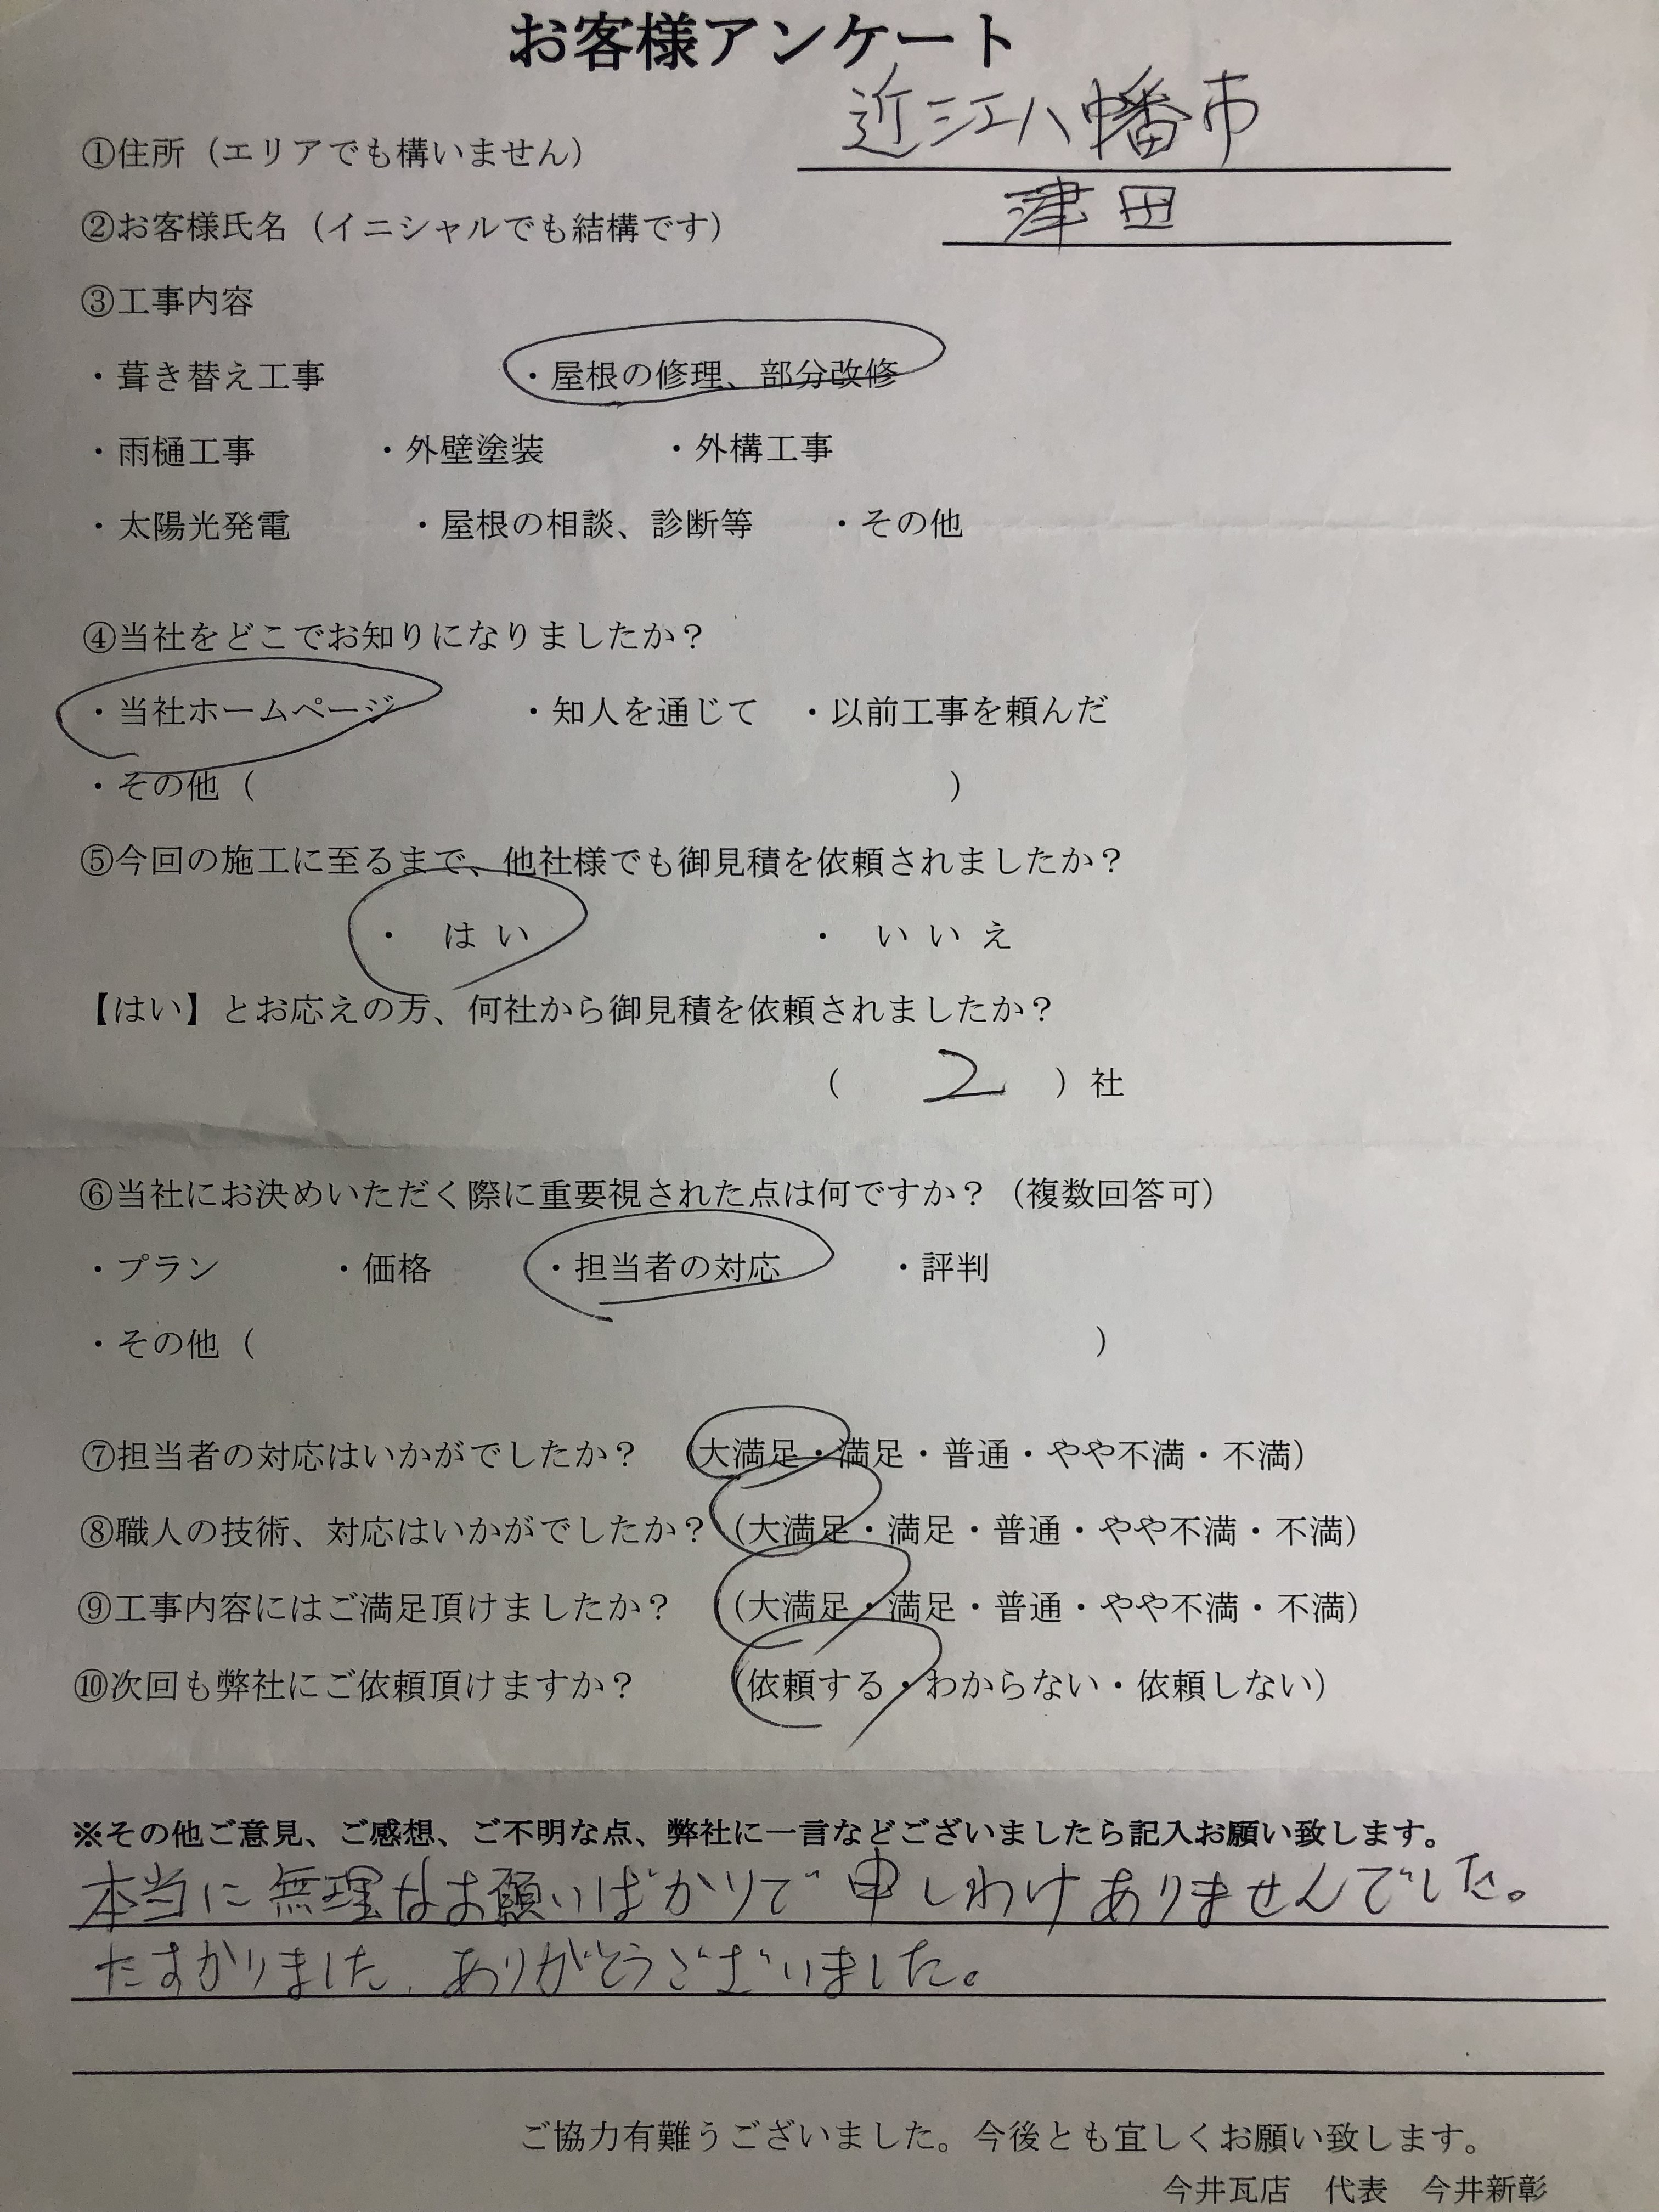 お客様アンケート
①住所（エリアでも構いません） 近江八幡市
②お客様氏名（イニシャルでも結構です） 津田
③工事内容
・葺き替え工事 ・屋根の修理、部分改修
・雨樋工事 ・外壁塗装 ・外構工事
・太陽光発電 ・屋根の相談、診断等 ・その他
④当社をどこでお知りになりましたか？
・当社ホームページ ・知人を通じて ・以前工事を頼んだ
・その他（ ）
⑤今回の施工に至るまで、他社様でも御見積を依頼されましたか？
・ はい ・ いいえ
【はい】とお応えの方、何社から御見積を依頼されましたか？
（ 2 ）社
⑥当社にお決めいただく際に重要視された点は何ですか？（複数回答可）
・プラン ・価格 ・担当者の対応 ・評判
・その他（ ）
⑦担当者の対応はいかがでしたか？ （大満足・満足・普通・やや不満・不満）
⑧職人の技術、対応はいかがでしたか？（大満足・満足・普通・やや不満・不満）
⑨工事内容にはご満足頂けましたか？ （大満足・満足・普通・やや不満・不満）
⑩次回も弊社にご依頼頂けますか？ （依頼する・わからない・依頼しない）
※その他ご意見、ご感想、ご不明な点、弊社に一言などございましたら記入お願い致します。
本当に無理なお願いばかりで申しわけありませんでした。
たすかりました、ありがとうございました。
ご協力有難うございました。今後とも宜しくお願い致します。
今井瓦店 代表 今井新彰